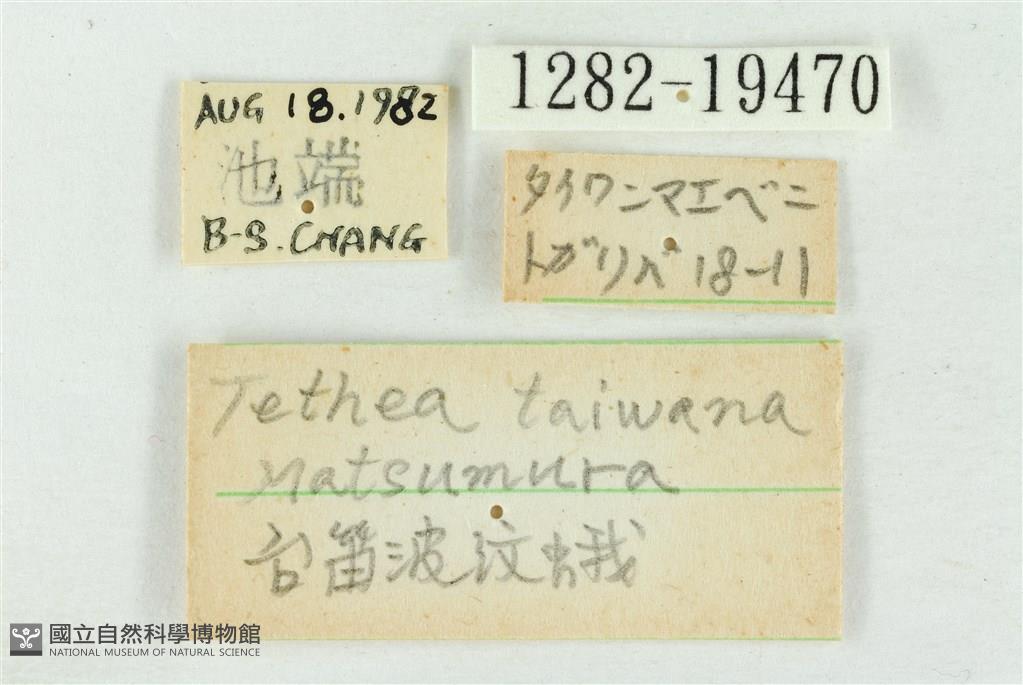 AUG 18.1982
池端
B-S.CHANG
1282-19470
タイワンマエベニ
トガリバ 18-11
Tethea taiwana
Matsumura
台笛波紋蛾
國立自然科學博物館
NATIONAL MUSEUM OF NATURAL SCIENCE